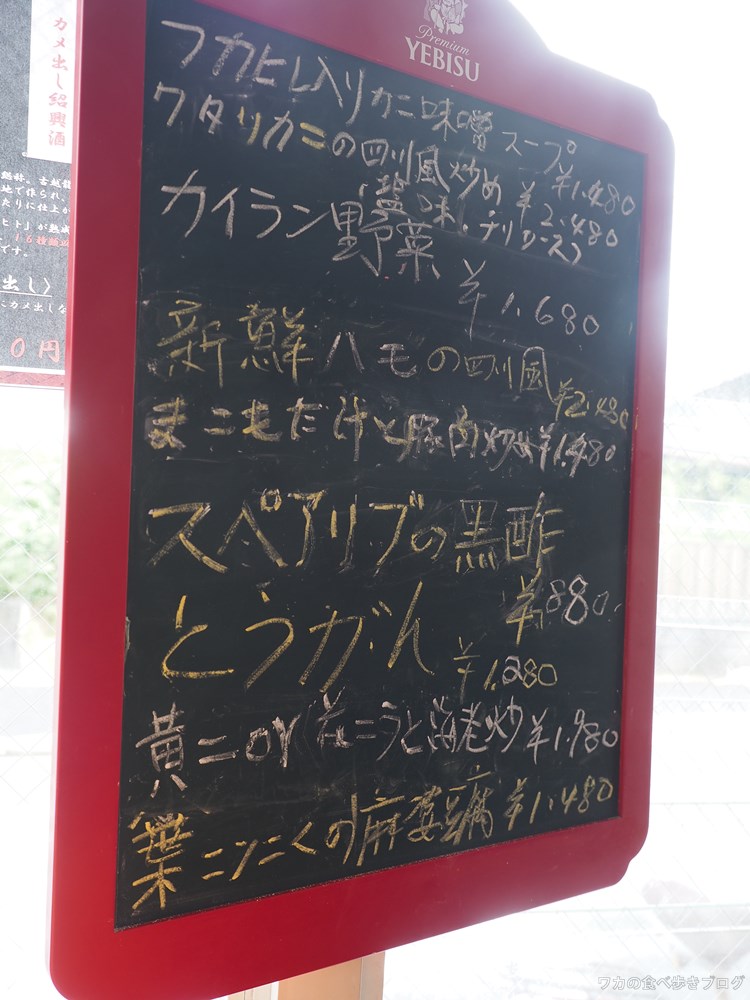 Premium
YEBISU
フカヒレ入りカニ味噌スープ ¥1.480
ワタリカニの四川風炒め ¥2.480
(塩味・チリソース)
カイラン野菜
¥1.680
新鮮ハモの四川風 ¥2.480
まこもだけと豚肉炒め ¥1.480
スペアリブの黒酢
¥880
とうがん ¥1.280
黄ニラor花ニラと海老炒 ¥1.980
葉ニンニクの麻婆豆腐 ¥1.480
カメ出し紹興酒
地で作られ、
です。
出し〉
0円
ワカの食べ歩きブログ